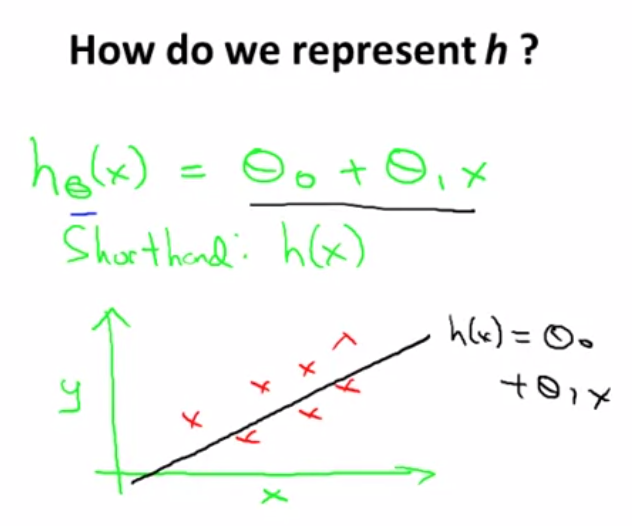 How do we represent h ?
hθ(x) = θ₀ + θ₁x
Shorthand: h(x)
y
x
h(x) = θ₀
+ θ₁x